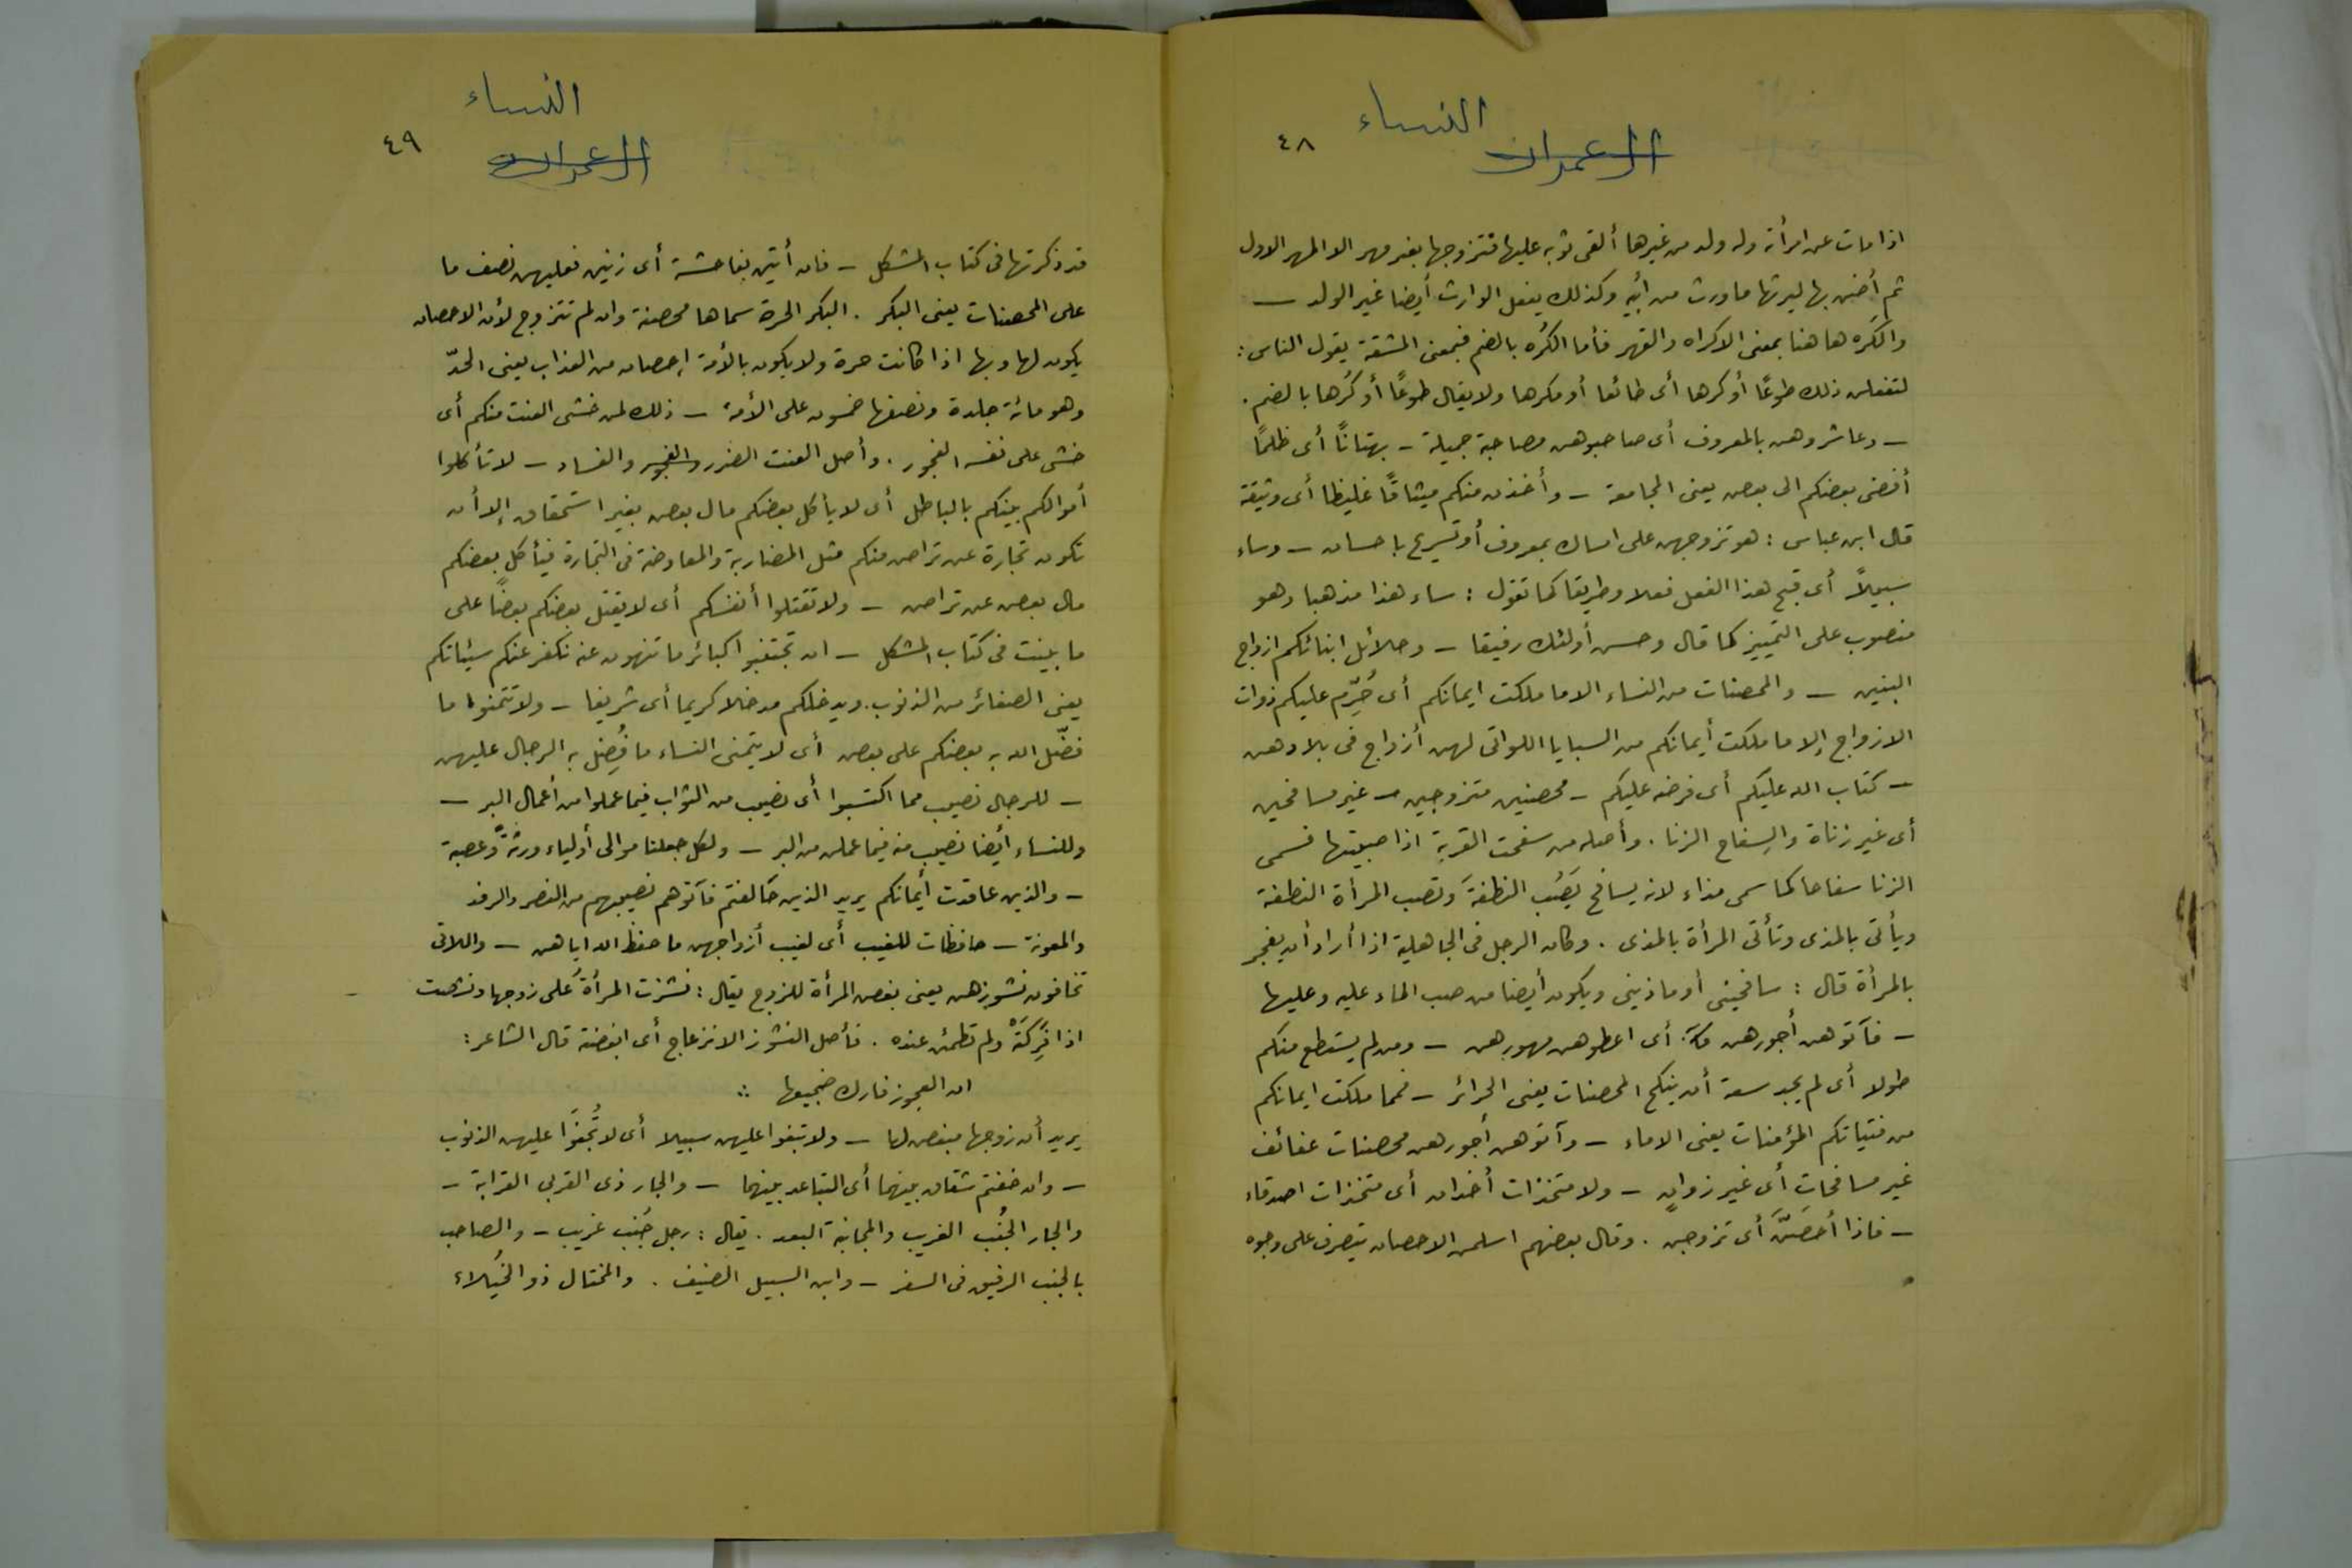 النساء
ال عمران
٤٨
اذا مات عن امرأة وله ولد من غيرها ألقى ثوبه عليها فتزوجها بغير مهر الا المهر الاول
ثم أضر بها ليرثها ما ورث من أبيه وكذلك يفعل الوارث أيضا غير الولد —
والكَره ها هنا بمعنى الاكراه والقهر فأما الكُره بالضم فبمعنى المشقة يقول الناس :
لتفعلن ذلك طوعًا أو كرها أى طائعا أو مكرها ولا يقال طوعًا أو كُرها بالضم .
— وعاشروهن بالمعروف أى صاحبوهن مصاحبة جميلة — بهتانًا أى ظلمًا
أفضى بعضكم الى بعض يعنى المجامعة — وأخذن منكم ميثاقًا غليظا أى وثيقة
قال ابن عباس : هو تزوجهن على امساك بمعروف أو تسريح باحسان — وساء
سبيلاً أى قبح هذا الفعل فعلا وطريقا كما تقول : ساء هذا مذهبا وهو
منصوب على التمييز كما قال وحسن أولئك رفيقا — وحلائل ابنائكم ازواج
البنين — والمحصنات من النساء الا ما ملكت ايمانكم أى حُرِّم عليكم ذوات
الازواج إلا ما ملكت أيمانكم من السبايا اللواتى لهن أزواج فى بلادهن
— كتاب الله عليكم أى فرضه عليكم — محصنين متزوجين — غير مسافحين
أى غير زناة والسِفاح الزنا . وأصله من سفحت القربة اذا صببتها فسمى
الزنا سفاحا كما سمى مذاء لانه يسافح يَصُب النطفةَ وتصب المرأة النطفة
ويأتى بالمذى وتأتى المرأة بالمذى . وكان الرجل فى الجاهلية اذا أراد أن يفجر
بالمرأة قال : سافحينى أو ماذينى ويكون أيضا من صب الماء عليه وعليها
— فآتوهن أجورهن أى اعطوهن مهورهن — ومن لم يستطع منكم
طولا أى لم يجد سعة أن ينكح المحصنات يعنى الحرائر — فمما ملكت ايمانكم
من فتياتكم المؤمنات يعنى الاماء — وآتوهن أجورهن محصنات عفائف
غير مسافحات أى غير زوانٍ — ولا متخذات أخدان أى متخذات اصدقاء
— فاذا أُحصَنَّ أى تزوجن . وقال بعضهم اسلمن الاحصان يتصرف على وجوه
النساء
ال عمران
٤٩
قد ذكرتها فى كتاب المشكل — فان أتين بفاحشة أى زنين فعليهن نصف ما
على المحصنات يعنى البكر . البكر الحرة سماها محصنة وان لم تتزوج لأن الاحصان
يكون لها وبها اذا كانت حرة ولا يكون بالأمة إحصان من العذاب يعنى الحدّ
وهو مائة جلدة ونصفها خمسون على الأمة — ذلك لمن خشى العنت منكم أى
خشى على نفسه الفجور . وأصل العنت الضرر والفجور والفساد — لا تأكلوا
أموالكم بينكم بالباطل أى لا يأكل بعضكم مال بعض بغير استحقاق إلا أن
تكون تجارة عن تراض منكم مثل المضاربة والمعاوضة فى التجارة فيأكل بعضكم
مال بعض عن تراض — ولا تقتلوا أنفسكم أى لا يقتل بعضكم بعضًا على
ما بينت فى كتاب المشكل — ان تجتنبوا كبائر ما تنهون عنه نكفر عنكم سيئاتكم
يعنى الصغائر من الذنوب . ويدخلكم مدخلا كريما أى شريفا — ولا تتمنوا ما
فضّل الله به بعضكم على بعض أى لا يتمنى النساء ما فُضِل به الرجال عليهن
— للرجال نصيب مما اكتسبوا أى نصيب من الثواب فيما عملوا من أعمال البر —
وللنساء أيضا نصيب منه فيما عملن من البر — ولكل جعلنا موالى أولياء ورثةً وعصبة
— والذين عاقدت أيمانكم يريد الذين حَالفتم فآتوهم نصيبهم من النصر والرفد
والمعونة — حافظات للغيب أى لغيب أزواجهن ما حفظ الله اياهن — واللاتى
تخافون نشوزهن يعنى بغض المرأة للزوج يقال : نشزت المرأةُ على زوجها ونشصت
اذا فَرِكَتْهُ ولم تطمئن عنده . فأصل النشوز الانزعاج أى ابغضته قال الشاعر :
ان العجوز فارك ضجيعها :.
يريد أن زوجها مبغض لها — ولا تبغوا عليهن سبيلا أى لا تُجْنَوْا عليهن الذنوب
— وان خفتم شقاق بينهما أى التباعد بينهما — والجار ذى القربى القرابة —
والجار الجُنُب الغريب والمجانبة البعد . يقال : رجل جُنُب غريب — والصاحب
بالجنب الرفيق فى السفر — وابن السبيل الضيف . والمختال ذو الخُيَلاء